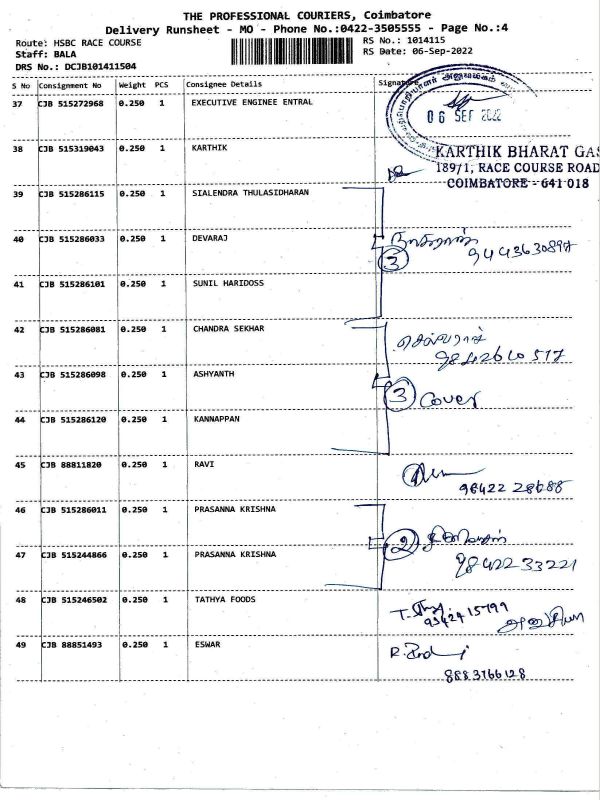 THE PROFESSIONAL COURIERS, Coimbatore
Delivery Runsheet - MO - Phone No.:0422-3505555 - Page No.:4
Route: HSBC RACE COURSE
Staff: BALA
DRS No.: DCJB101411504
RS No.: 1014115
RS Date: 06-Sep-2022
S No Consignment No Weight PCS Consignee Details Signature
37 CJB 515272968 0.250 1 EXECUTIVE ENGINEE ENTRAL
06 SEP 2022
38 CJB 515319043 0.250 1 KARTHIK
KARTHIK BHARAT GAS
189/1, RACE COURSE ROAD
COIMBATORE - 641 018
39 CJB 515286115 0.250 1 SIALENDRA THULASIDHARAN
40 CJB 515286033 0.250 1 DEVARAJ
3
41 CJB 515286101 0.250 1 SUNIL HARIDOSS
42 CJB 515286081 0.250 1 CHANDRA SEKHAR
செல்வராஜ்
9842610517
43 CJB 515286098 0.250 1 ASHYANTH
3 Cover
44 CJB 515286120 0.250 1 KANNAPPAN
45 CJB 88811820 0.250 1 RAVI
46 CJB 515286011 0.250 1 PRASANNA KRISHNA
2
47 CJB 515244866 0.250 1 PRASANNA KRISHNA
98422 33221
48 CJB 515246502 0.250 1 TATHYA FOODS
49 CJB 88851493 0.250 1 ESWAR
8883766128